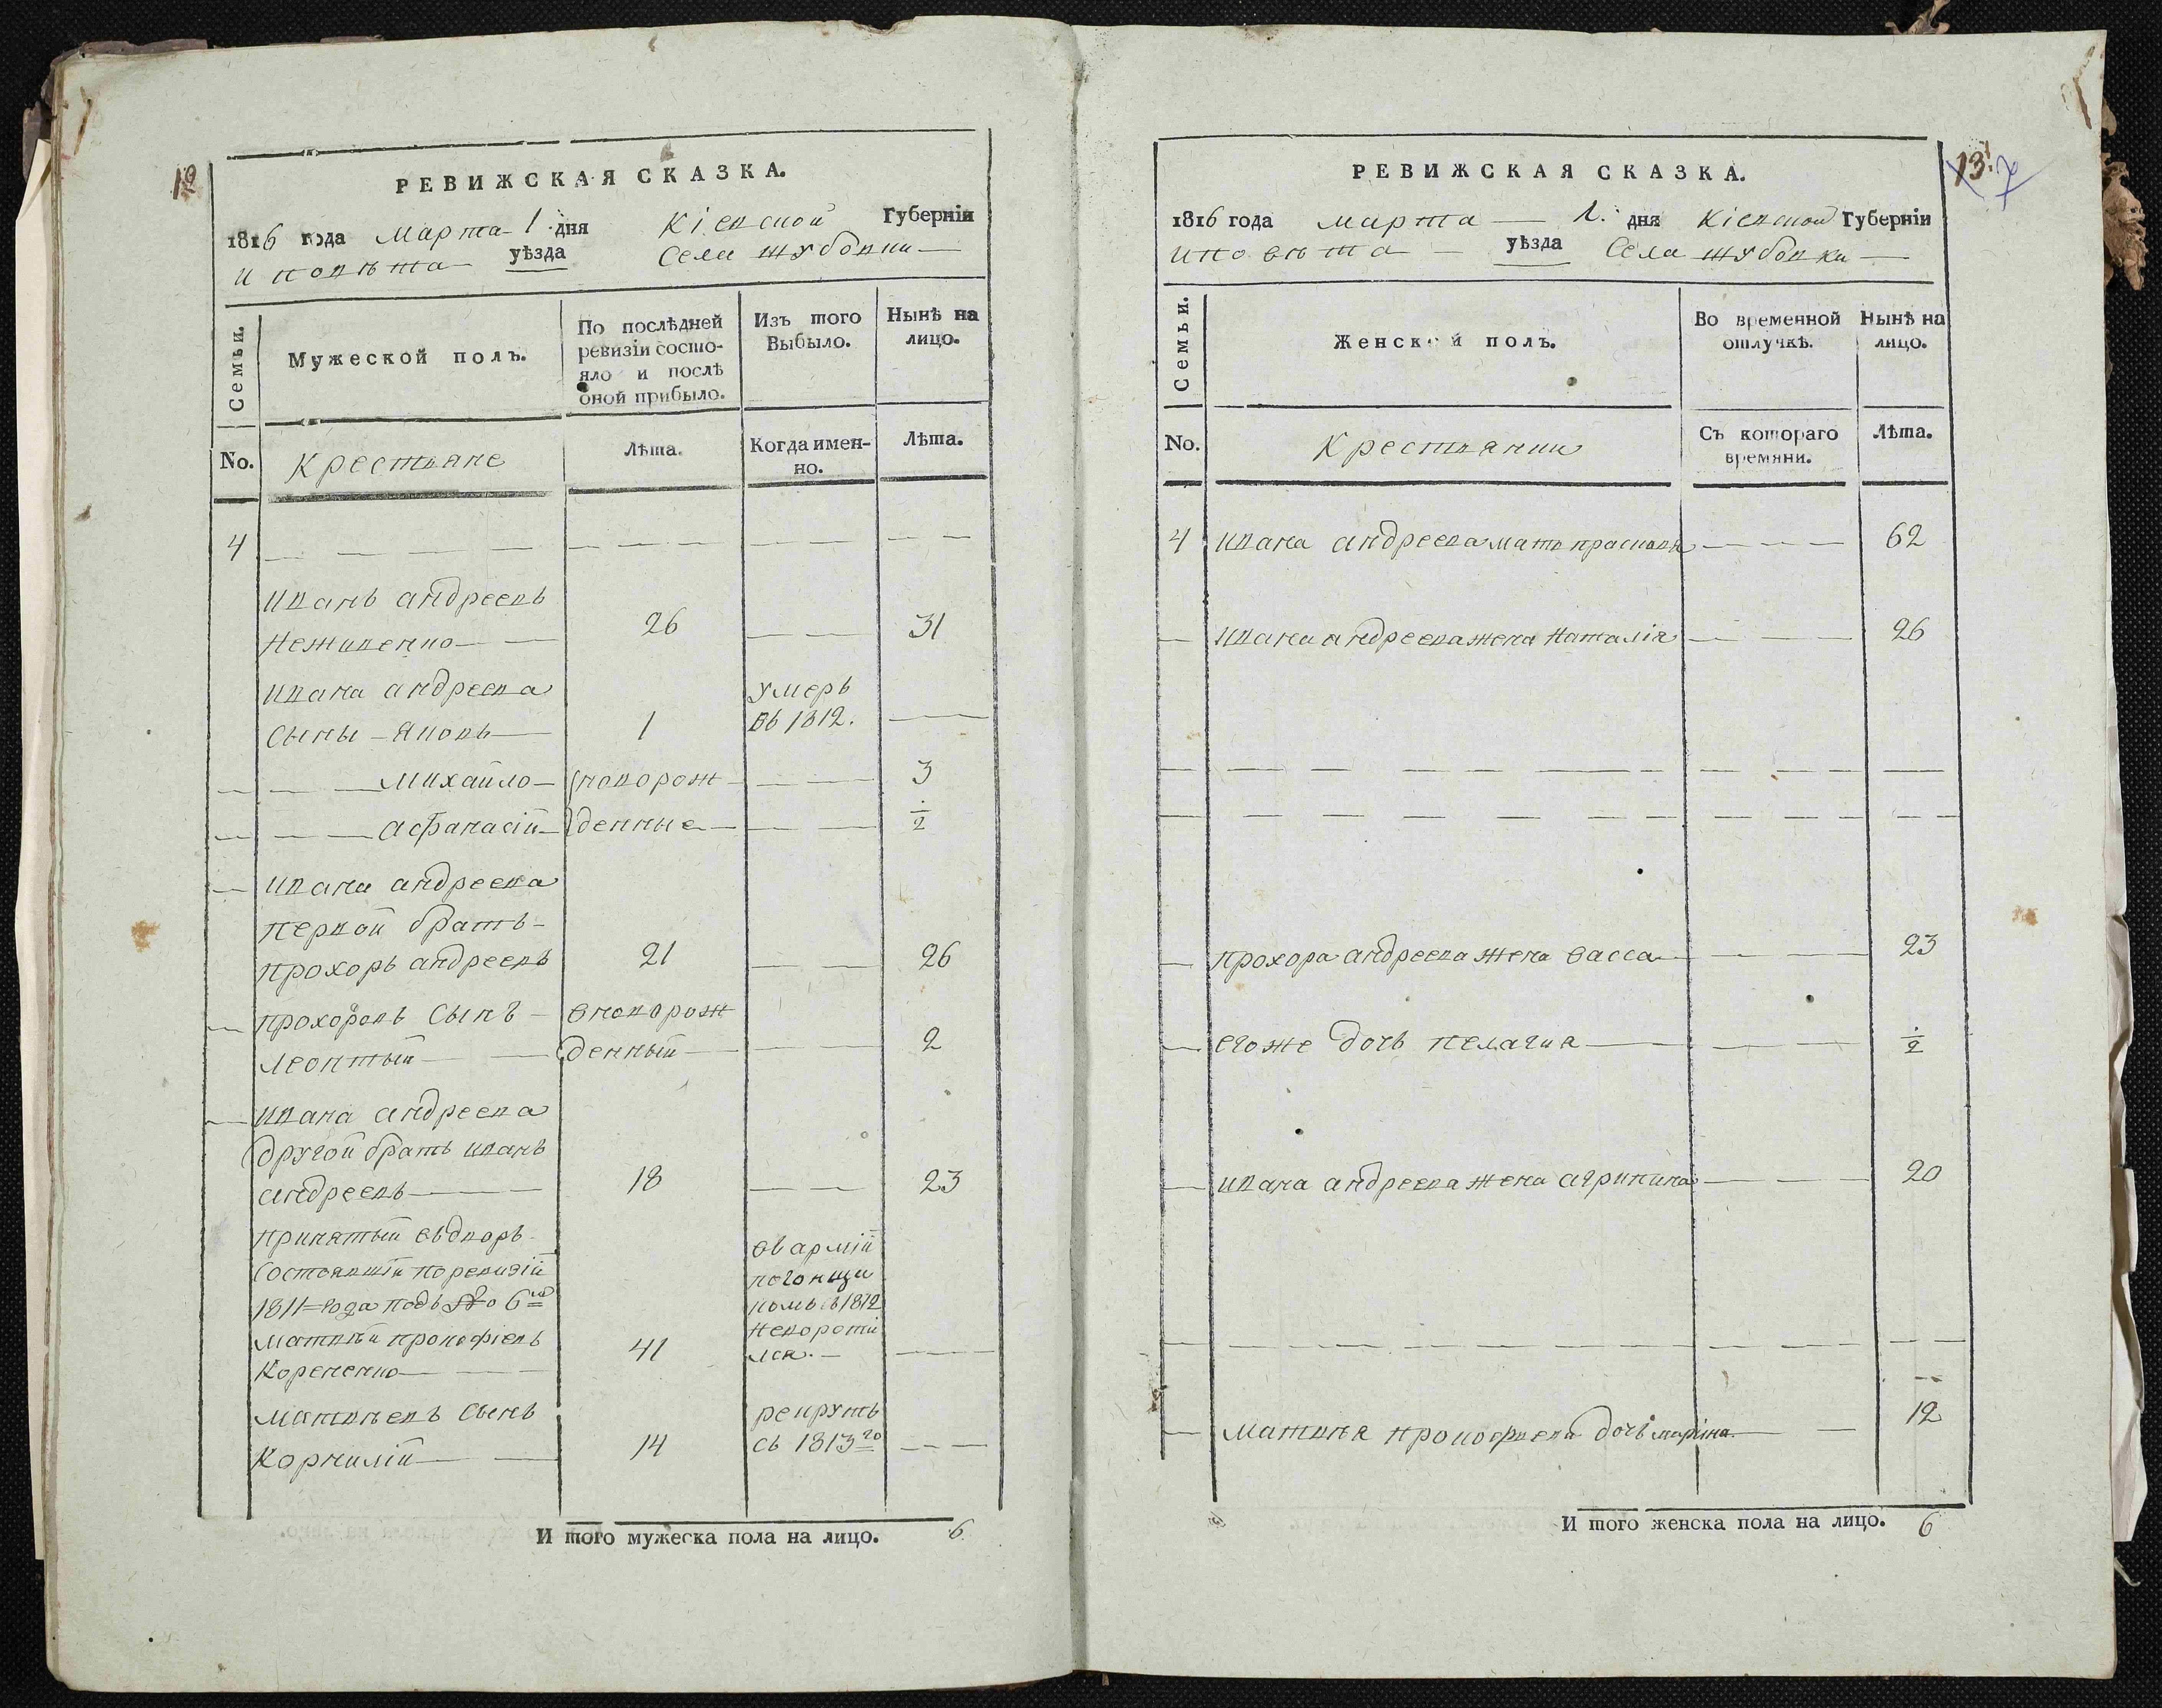 12
РЕВИЖСКАЯ СКАЗКА.
1816 года марта 1 дня Кіевской Губерніи
и повѣта уѣзда Села жуковки
Семьи.
Мужеской полъ.
По послѣдней ревизіи состо-
яло и послѣ
оной прибыло.
Изъ того
Выбыло.
Нынѣ на
лицо.
No.
Крестьяне
Лѣта.
Когда имен-
но.
Лѣта.
4
Иванъ андреевъ
Неживенко 26 31
Ивана андреева умеръ
сыны яковъ 1 въ 1812.
михайло новорож 3
афанасій денные ½
Ивана андреева
первой братъ
прохоръ андреевъ 21 26
прохоровъ сынъ новорож
леонтый денный 2
Ивана андреева
другой братъ иванъ
андреевъ 18 23
принятый въ дворъ
состоявшій по ревизіи въ арміи
1811 года подъ No 6 погонщи
матвѣй прокофіевъ комъ въ 1812
Корененко 41 неворотил
лся.
матвѣевъ сынъ рекрутъ
Корнилій 14 съ 1813го
И того мужеска пола на лицо. 6
13. 7
РЕВИЖСКАЯ СКАЗКА.
1816 года марта 1. дня Кіевской Губерніи
и повѣта уѣзда Села
Семьи.
Женской полъ.
Во временной
отлучкѣ.
Нынѣ на
лицо.
No.
Крестьянки
Съ котораго
времяни.
Лѣта.
4 ивана андреева мать прасковя 62
ивана андреева жена Наталія 26
прохора андреева жена васса 23
егоже дочь пелагия ½
ивана андреева жена агрипина 20
матвѣя прокофиева дочь марина 12
И того женска пола на лицо. 6